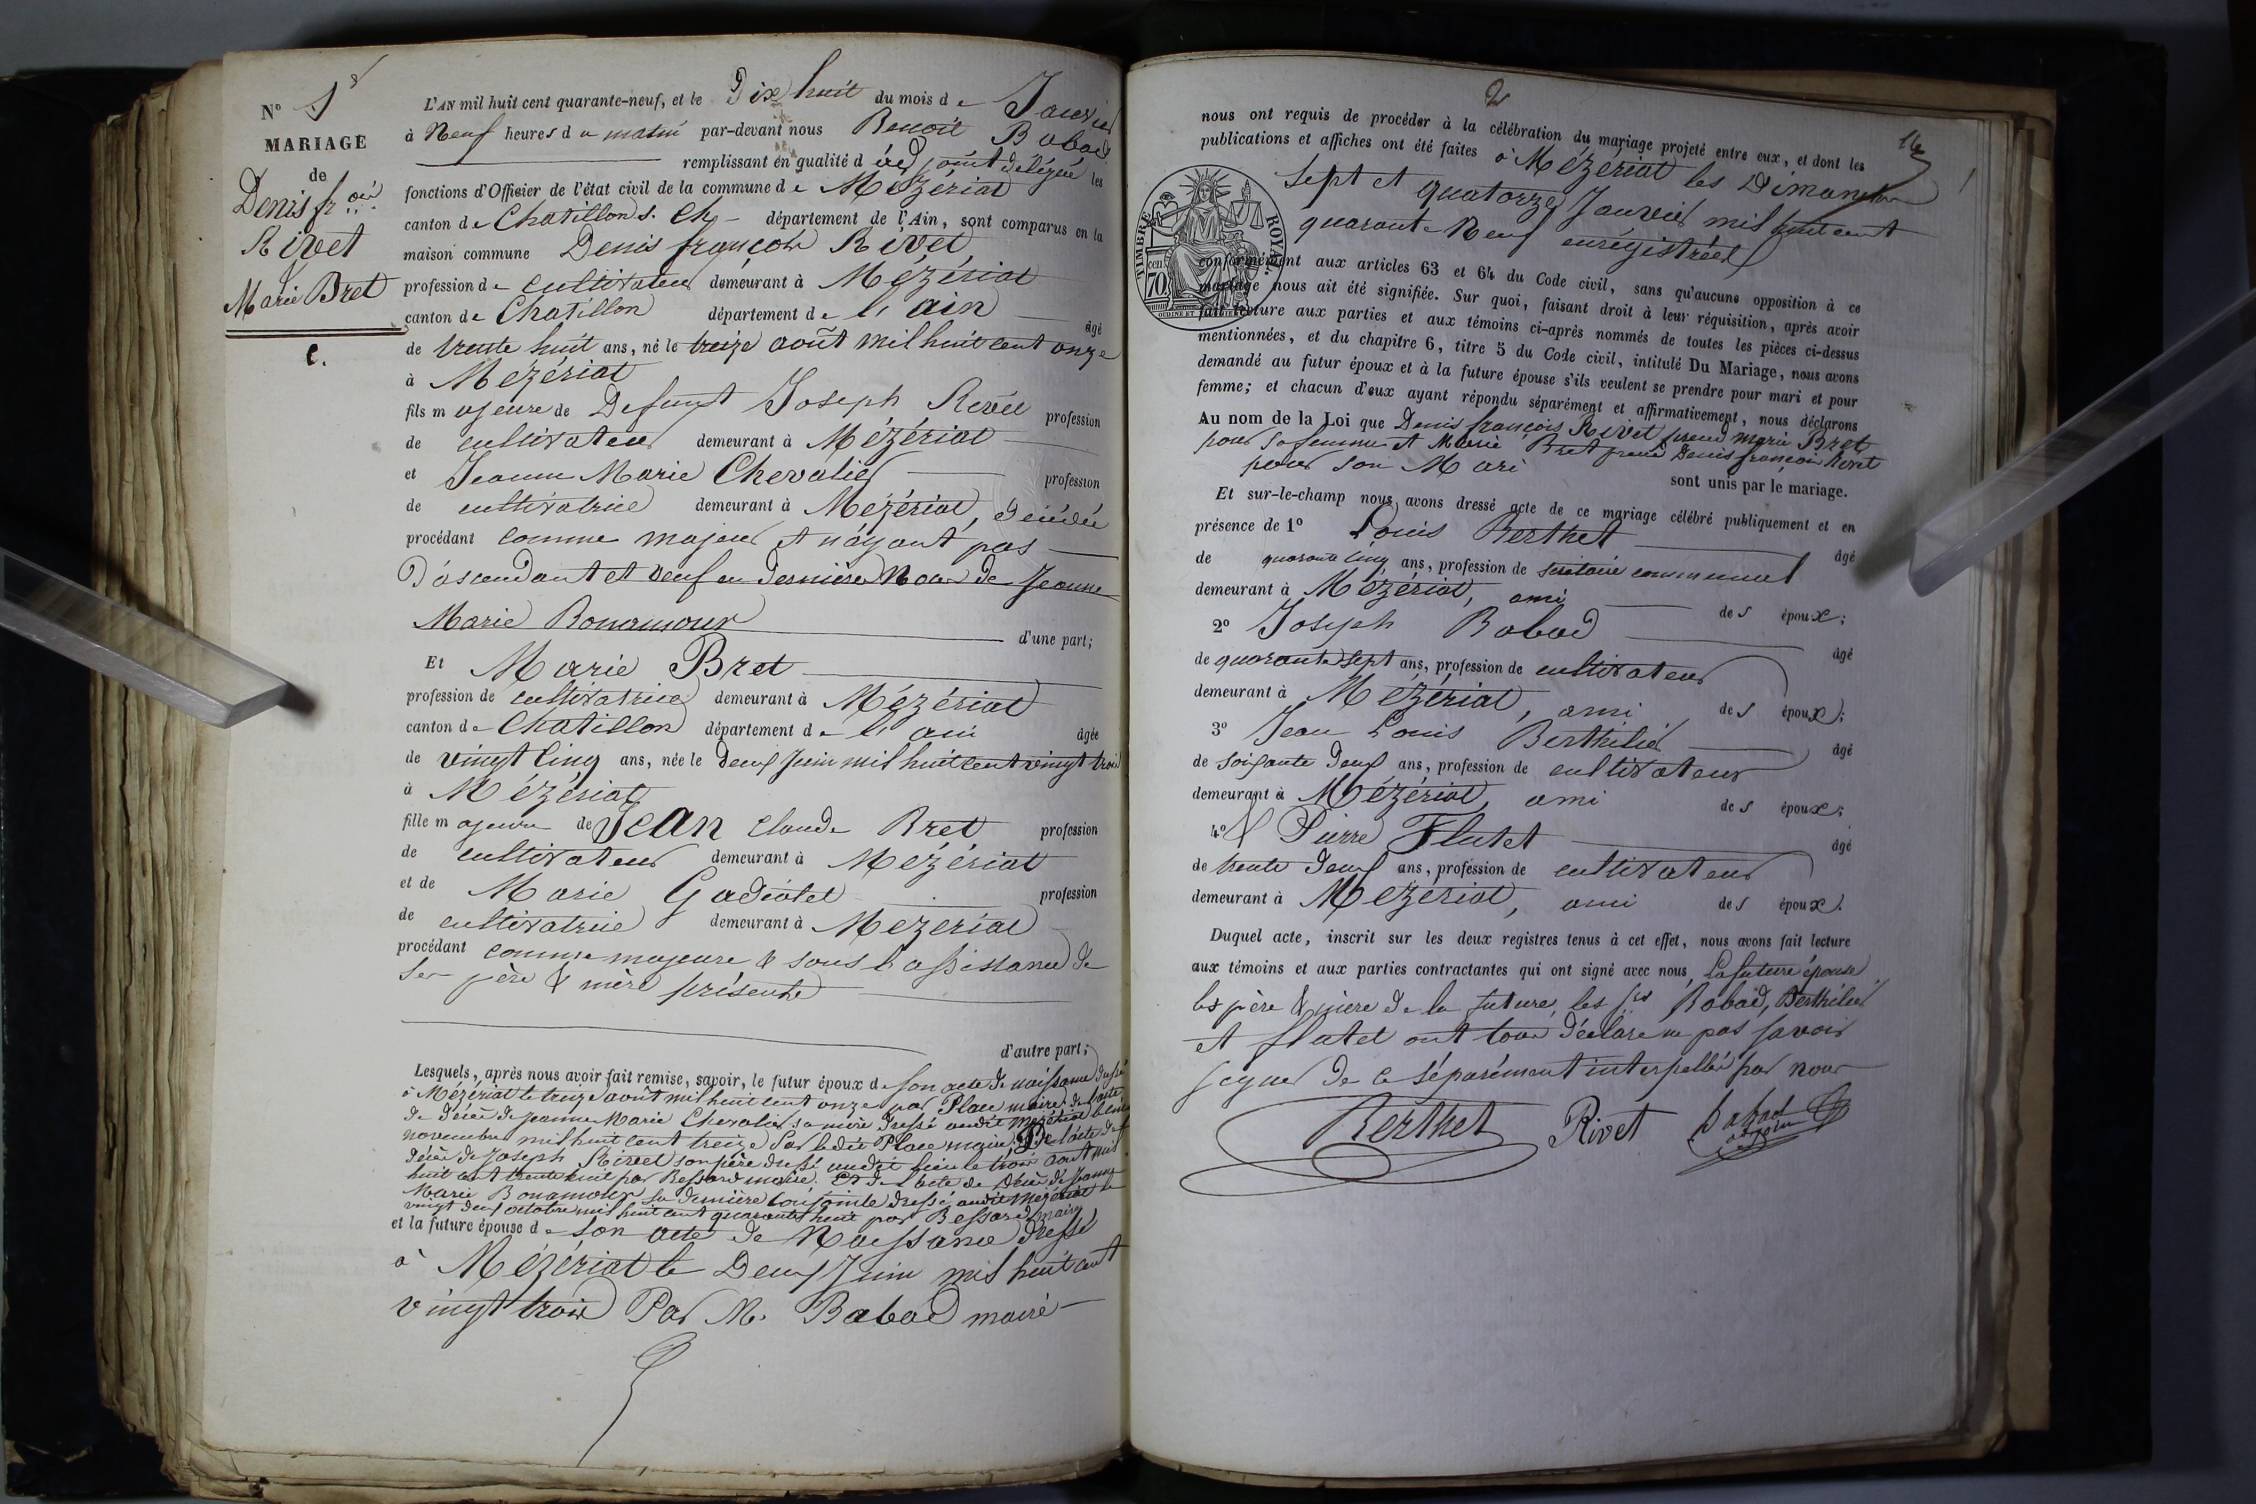 N° 1
MARIAGE
de
Denis fr.ois
Rivet
&
Marie Bret
C.
L'AN mil huit cent quarante-neuf, et le Dix huit du mois de Janvier
à Neuf heures du matin par-devant nous Benoit Babad
remplissant en qualité d'adjoint délégué les
fonctions d'Officier de l'état civil de la commune de Mézériat
canton de Chatillon s. Ch. département de l'Ain, sont comparus en la
maison commune Denis françois Rivet
profession de cultivateur demeurant à Mézériat
canton de Chatillon département de l'ain âgé
de trente huit ans, né le treize août mil huit cent onze
à Mézériat
fils majeur de Defunt Joseph Rivet profession
de cultivateur demeurant à Mézériat
et Jeanne Marie Chevalier profession
de cultivatrice demeurant à Mézériat, décédée
procédant comme majeur et n'ayant pas
D'ascendant et veuf en dernière Noce de Jeanne
Marie Bonamour d'une part;
Et Marie Bret
profession de cultivatrice demeurant à Mézériat
canton de Chatillon département de l'ain âgée
de vingt Cinq ans, née le Deux Juin mil huit cent vingt trois
à Mézériat
fille majeure de Jean Claude Bret profession
de cultivateur demeurant à Mézériat
et de Marie Gadiolet profession
de cultivatrice demeurant à Mézériat
procédant comme majeure & sous l'assistance de
ses père & mère présents
d'autre part;
Lesquels, après nous avoir fait remise, savoir, le futur époux de son acte de naissance dressé
à Mézériat le treize août mil huit cent onze par Place maire, de l'acte
de décès de Jeanne Marie Chevalier sa mère dressé audit Mézériat le cinq
novembre mil huit cent treize par ledit Place maire, De l'acte de
décès de Joseph Rivet son père dressé audit lieu le trois août mil
huit cent trente huit par Bessard maire. Et de l'acte de Décès de Jeanne
Marie Bonamour sa dernière conjointe dressé audit Mézériat le
vingt deux octobre mil huit cent quarante huit par Bessard maire
et la future épouse de son acte de Naissance dressé
à Mézériat le Deux Juin mil huit cent
vingt trois Par M. Babad maire
2
16
nous ont requis de procéder à la célébration du mariage projeté entre eux, et dont les
publications et affiches ont été faites à Mézériat les Dimanches
sept et quatorze Janvier mil huit cent
quarante Neuf enrégistrées
TIMBRE ROYAL
70 cen.
conformément aux articles 63 et 64 du Code civil, sans qu'aucune opposition à ce
mariage nous ait été signifiée. Sur quoi, faisant droit à leur réquisition, après avoir
fait lecture aux parties et aux témoins ci-après nommés de toutes les pièces ci-dessus
mentionnées, et du chapitre 6, titre 5 du Code civil, intitulé Du Mariage, nous avons
demandé au futur époux et à la future épouse s'ils veulent se prendre pour mari et pour
femme; et chacun d'eux ayant répondu séparément et affirmativement, nous déclarons
Au nom de la Loi que Denis françois Rivet prend marie Bret
pour sa femme et Marie Bret prend Denis françois Rivet
pour son Mari
sont unis par le mariage.
Et sur-le-champ nous avons dressé acte de ce mariage célébré publiquement et en
présence de 1° Louis Berthet âgé
de quarante cinq ans, profession de secrétaire communal
demeurant à Mézériat, ami des époux;
2° Joseph Babad âgé
de quarante sept ans, profession de cultivateur
demeurant à Mézériat, ami des époux;
3° Jean Louis Berthilié âgé
de soixante Deux ans, profession de cultivateur
demeurant à Mézériat, ami des époux;
4° & Pierre Flutet âgé
de trente Deux ans, profession de cultivateur
demeurant à Mézériat, ami des époux.
Duquel acte, inscrit sur les deux registres tenus à cet effet, nous avons fait lecture
aux témoins et aux parties contractantes qui ont signé avec nous, La future épouse
les père & mère de la future, les srs Babad, Berthilié
et flutet ont tous déclaré ne pas savoir
signer de ce séparément interpellés par nous
Berthet Rivet Babad
adjoint